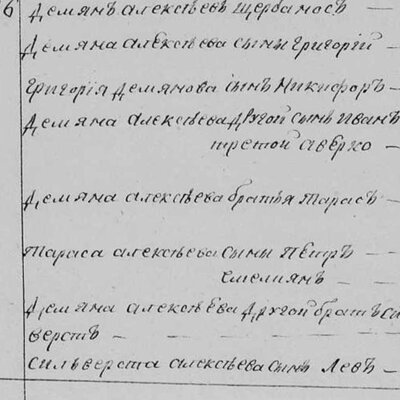 6 Демянъ алексѣевъ щербаносъ —
Демяна алексѣева сынъ григорій —
григорія Демянова сынъ Никифоръ —
Демяна алексѣева Другой сынъ Иванъ
третой аверко —
Демяна алексѣева братья тарасъ —
тараса алексѣева сыны Пётръ — —
емелиянъ — —
Демяна алексѣева Другой братъ си
верстъ — — — — —
сильверста алексѣева сынъ Левъ —